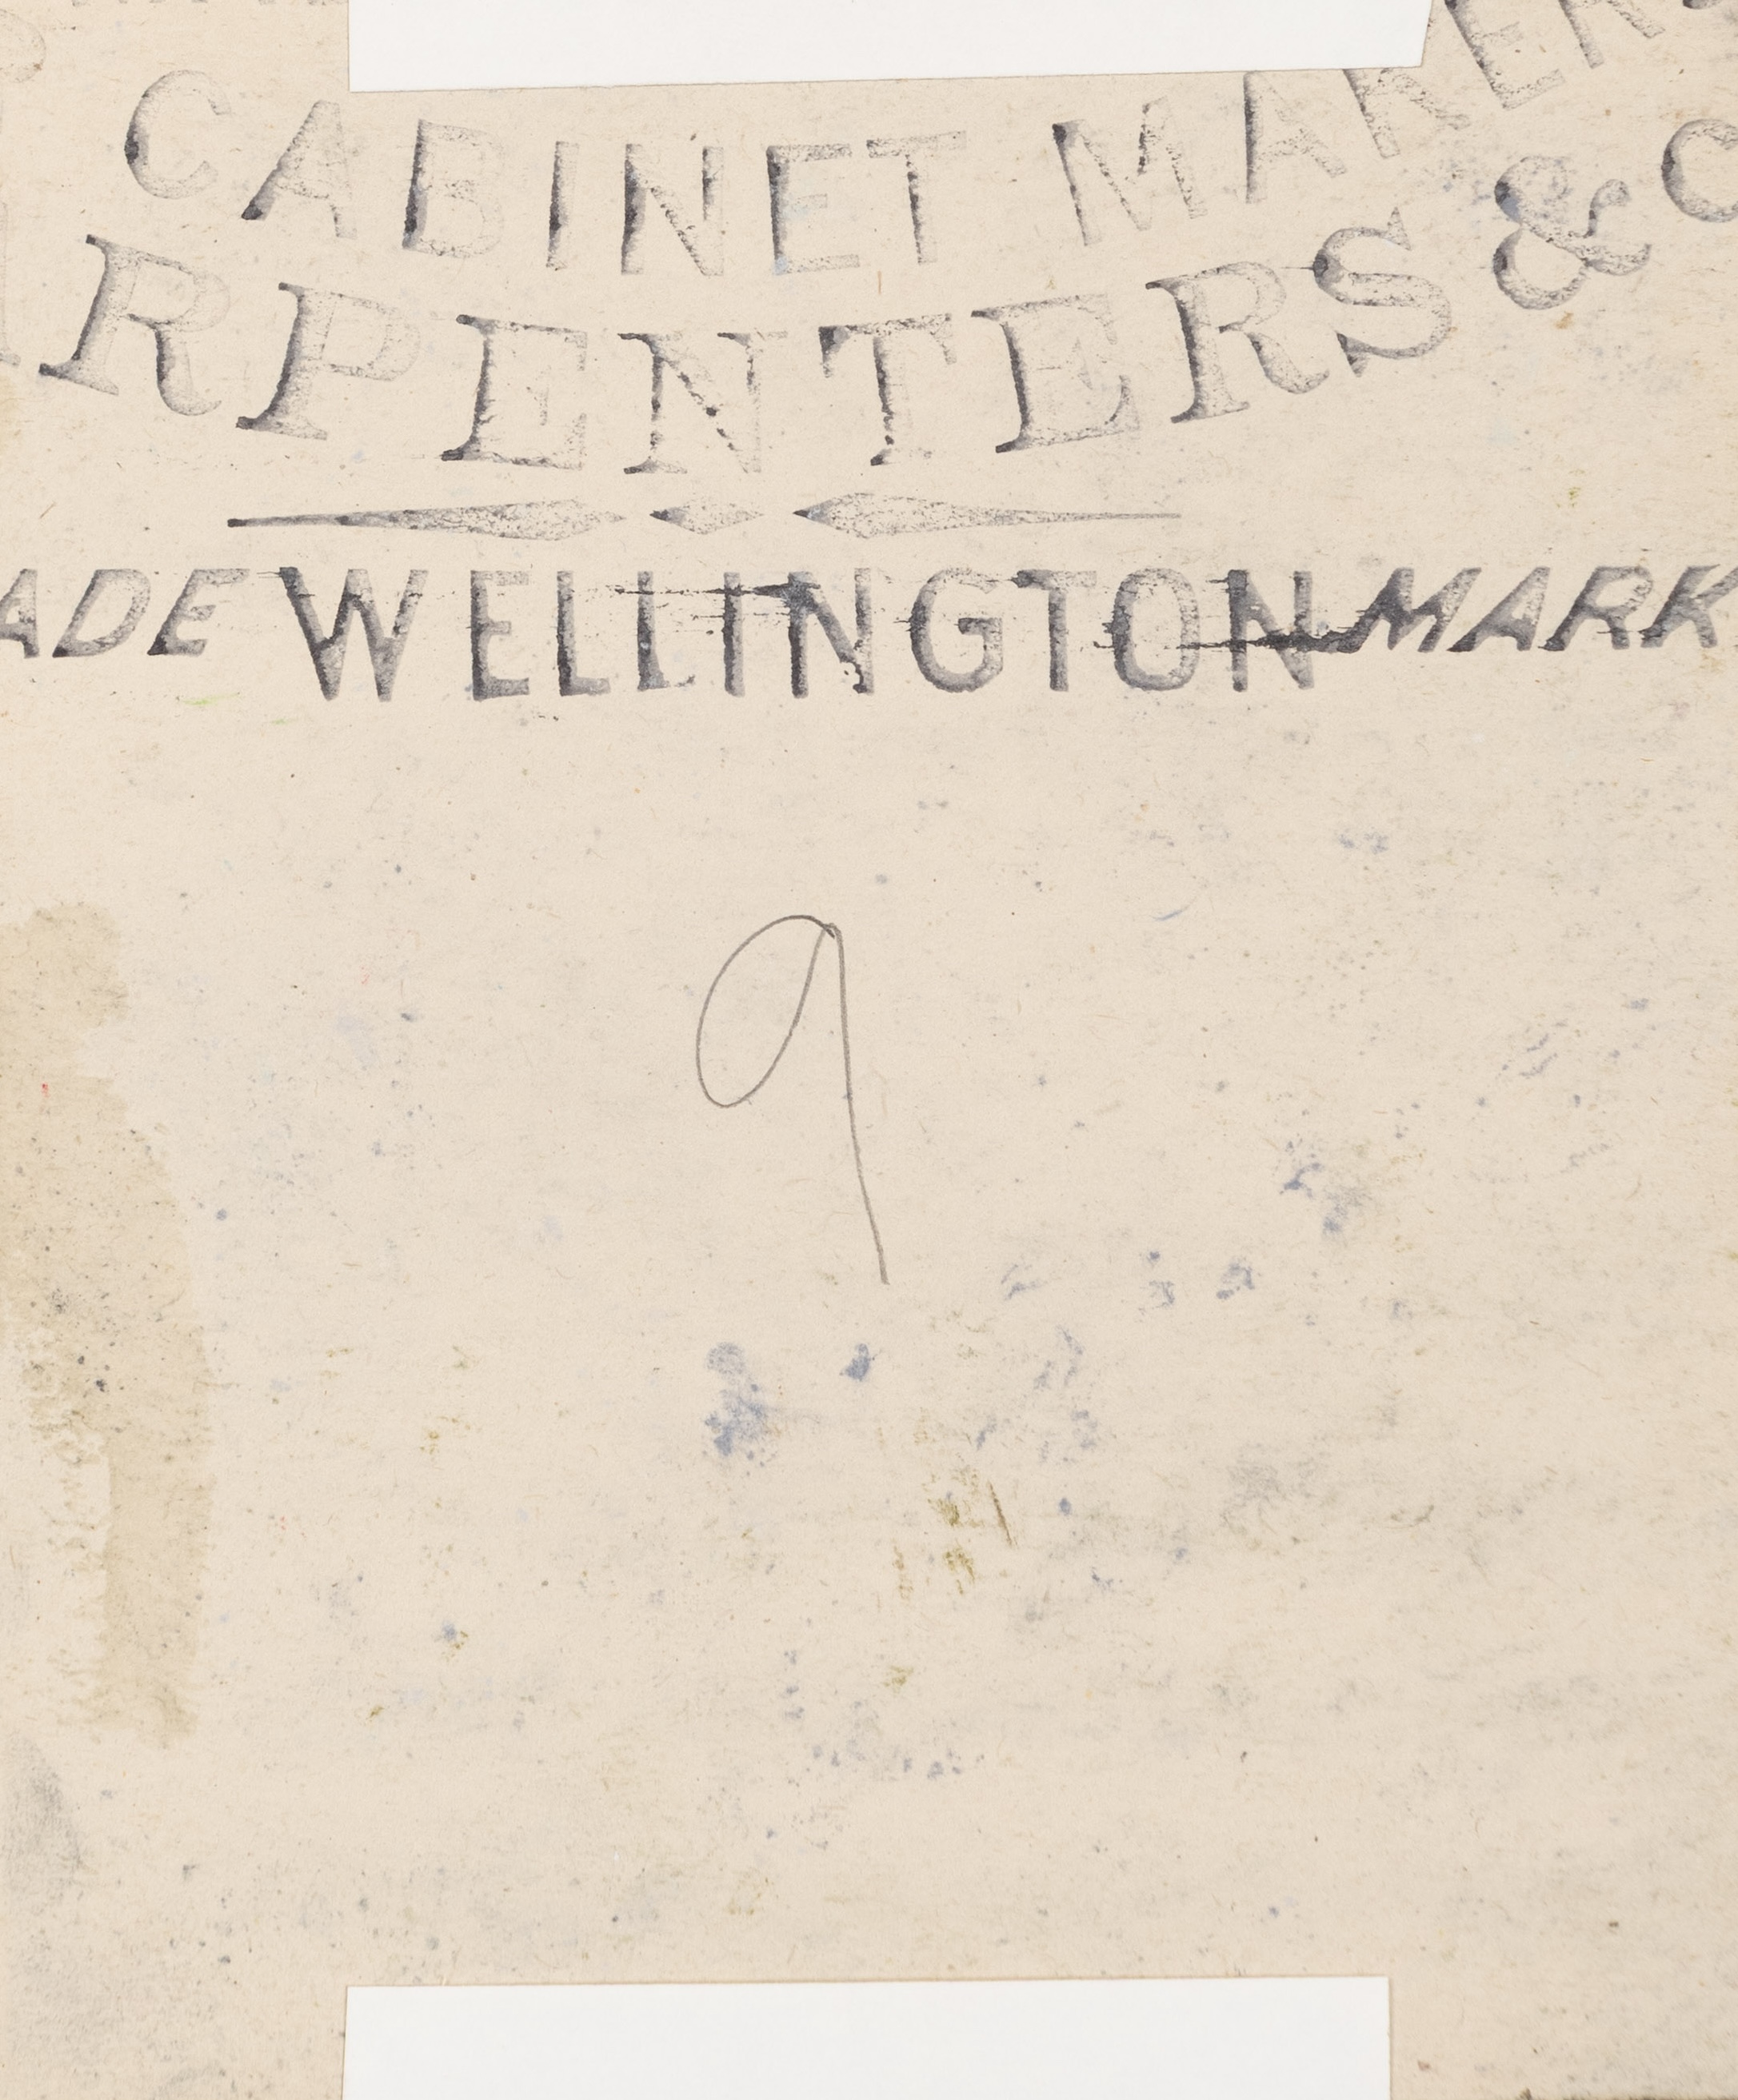 CABINET MAKERS
RPENTERS & C
ADE WELLINGTON MARK
9